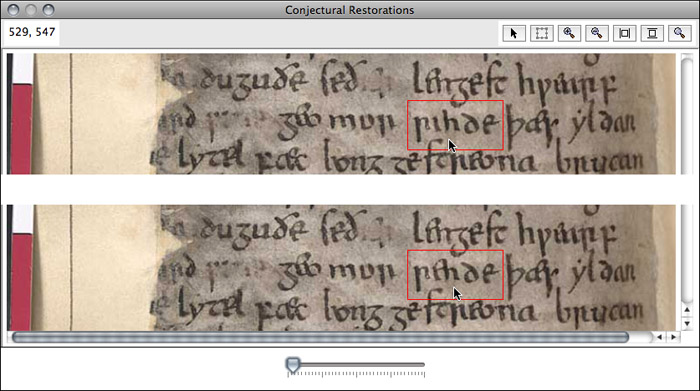 Conjectural Restorations
529, 547
duguðe seð lengest hƿearf
geo mor þæs yldan
lytel fæc long gestreona brucan
duguðe seð lengest hƿearf
geo mor þæs yldan
lytel fæc long gestreona brucan